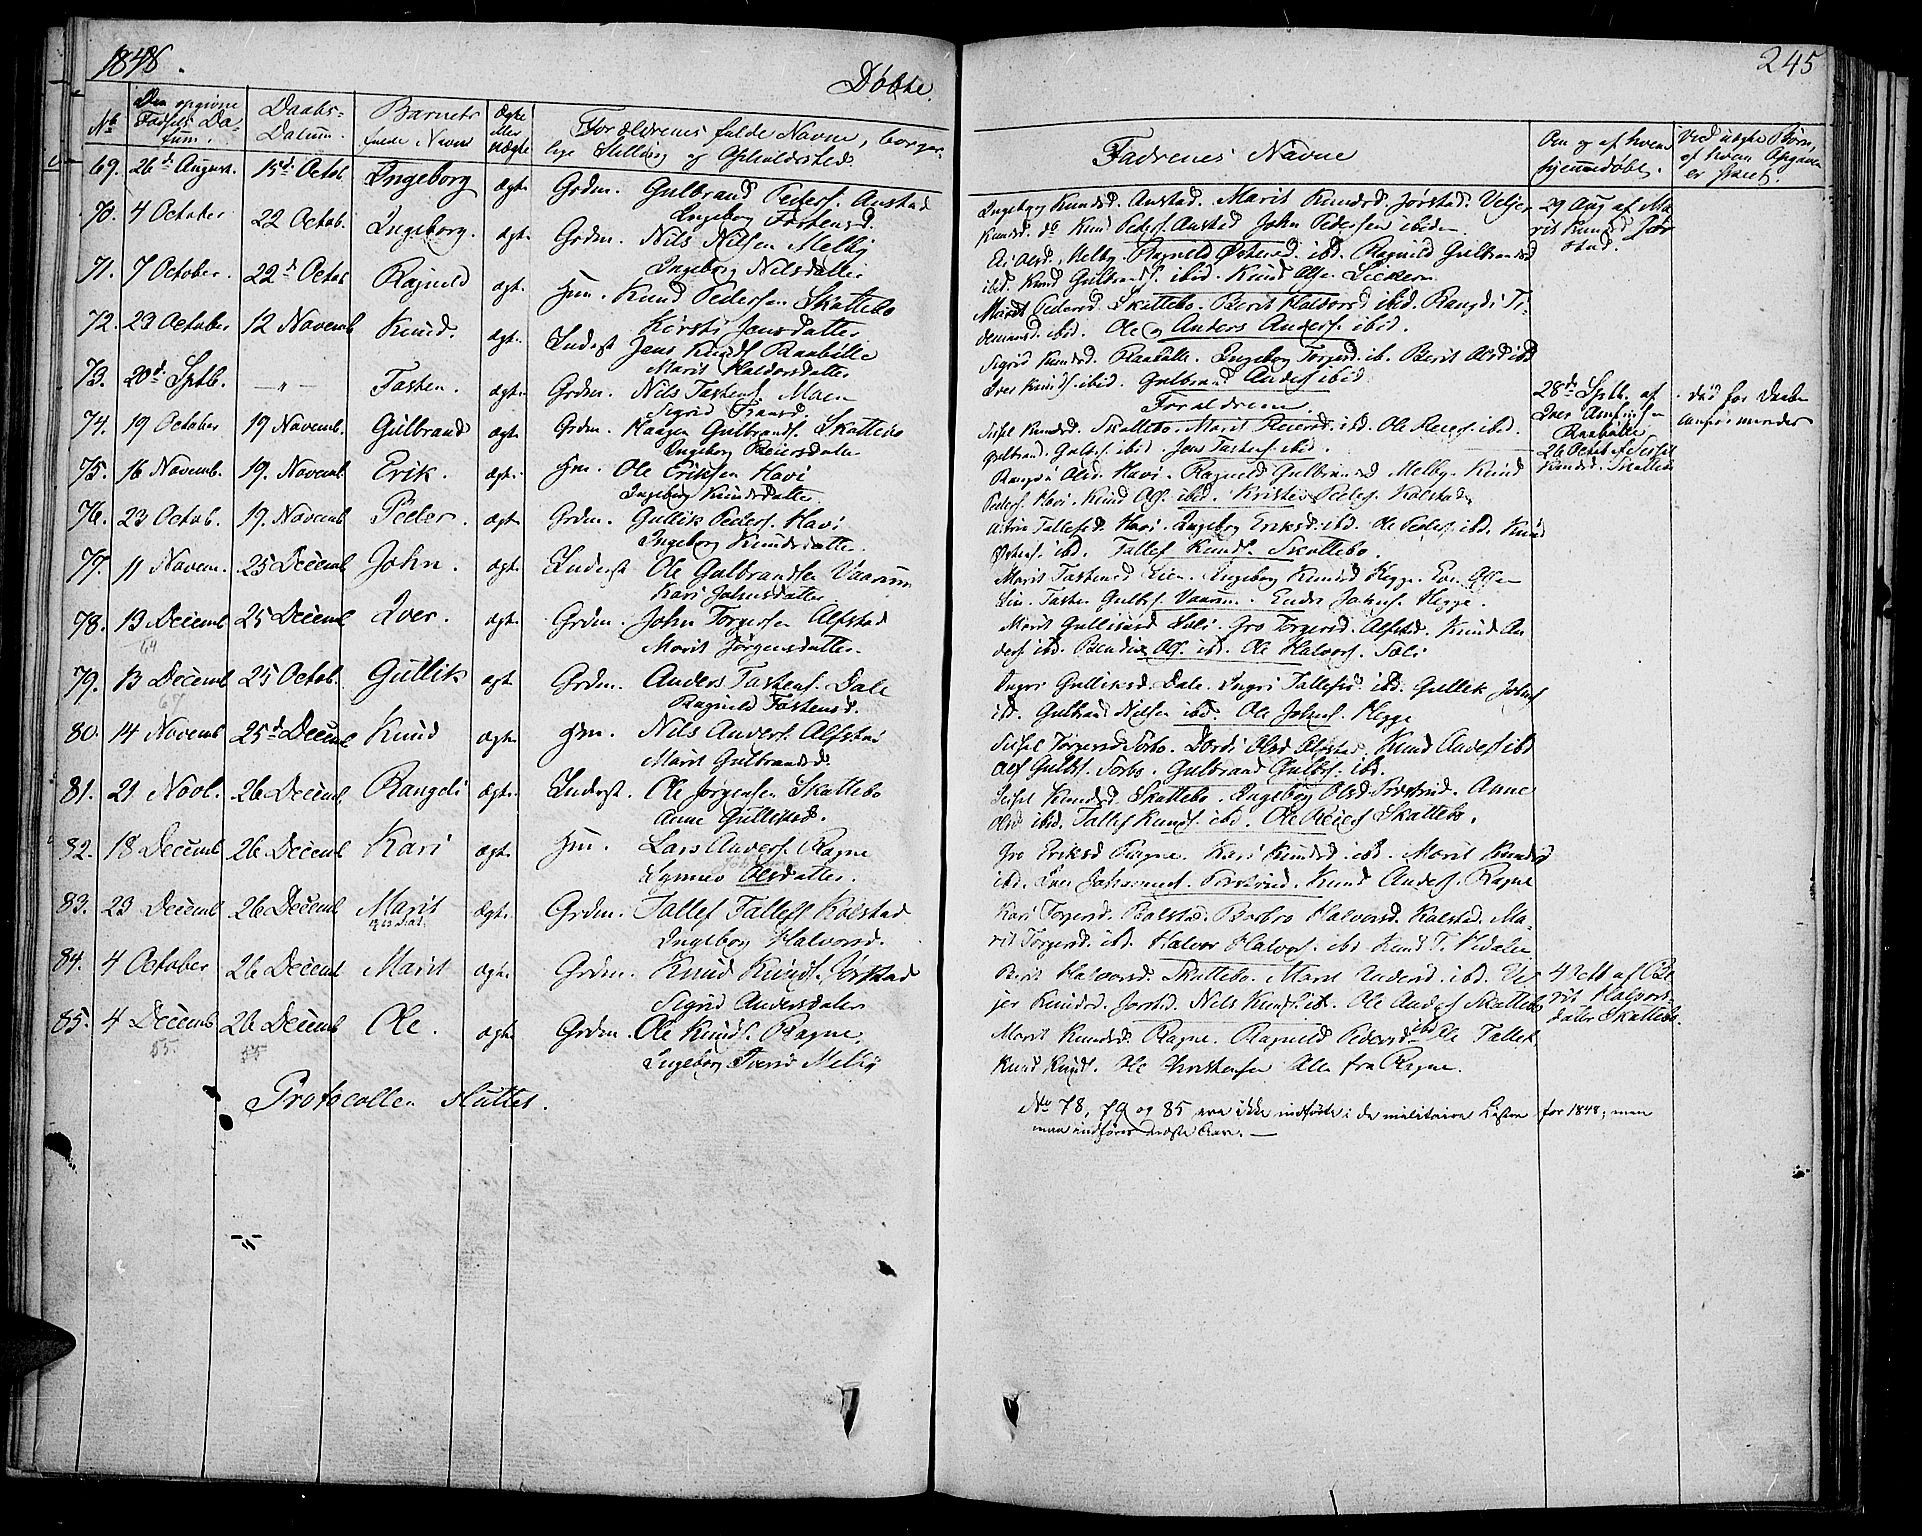 1848.
Döbte.
245
No
Den opgivne Fødsels Datum.
Daabs-Datum.
Barnets fulde Navn
Ægte eller uægte
Forældrenes fulde Navne, borgerlige Stilling og Opholdssted.
Faddrenes Navne
Om og af hvem hjemmedøbt.
Ved uægte Børn, af hvem Opgaven er skeet.
69. 26d August. 15d Octob. Ingeborg ægt. Grdm. Gulbrand Peders. Anstad
Ingeborg Tostensd.
Ingeborg Knudsd. Anstad. Marit Knudsd. Jørstad. Veljer
Knudsd. do Knud Peders. Anstad John Pedersen ibidem.
29 Aug af Marit Knudsd Jørstad.
70. 4 October 22 Octob. Ingeborg. ægt. Grdm. Nils Nilsen Melby
Ingeborg Nilsdatter
Olsd. Melby. Ragnild Østensd. ibd. Ragnild Gulbrandsd
ibid. Knud Gulbrands. ibid. Knud Olsen
71. 7 October. 22d Octob Ragnild ægt. Hm. Knud Pedersen Skattebo
Kirsti Jensdatter
Marit Pedersd Skattebo. Berit Haldorsd ibid. Rangdi Tidemansd. ibid. Ole og Anders Anders. ibid.
72. 23 October 12 Novemb Knud. ægt. Inderst Jens Knuds. Raabølle
Marit Haldorsdatter
Sigrid Knudsd. Raabølle. Ingeborg Torgersd. ib. Berit Olsd ibd
Iver Knuds. ibid. Gulbrand Anders ibid.
73. 20d Sptb. — " — Tosten. ægt. Grdm. Nils Tostens. Moen
Sigrid Fransd.
Forældrene.
28d Sptb. af Iver Amundsen Raabølle.
død før Daaben anføres
74. 19 October 19 Novemb. Gulbrand ægt. Grdm. Haagen Gulbrands. Skattebo
Ingeborg Reiersdatter
Sissel Knudsd. Skattebo. Marit Reiersd. ibd. Ole Reiers. ibid.
Gulbrand Gulbs. ibid. Jens Tostens. ibid.
26 Octob af Sissel Knudsd. Skattebo
75. 16 Novemb. 19. Novemb Erik. ægt. Hm. Ole Eriksen Havi
Ingeborg Knudsdatter.
Olsd. Havi. Ragnild Gulbrandsd Melby. Knud
Peders. Havi. Knud Ols. ibid. Kristen Peders. Kolstad
76. 23 Octob. 19. Novemb Peder. ægt. Grdm. Gullik Peders. Havi
Ingeborg Knudsdatter.
Astri Tollefsd. Havi. Ingeborg Eriksd. ibd. Ole Peders. ibd. Knud
Østens. ibd. Tollef Knuds. Skattebo.
77. 11 Novem. 25 Decemb John. ægt. Inderst Ole Gulbrandsen Vaarum
Kari Johnsdatter.
Marit Tostensd Lien. Ingeborg Knudsd Hegge. Even Olsen
Lien. Tosten Gulbs. Vaarum. Endre Johns. Hegge.
78. 13 Decemb 25 Decemb Iver. ægt. Grdm. John Torgersen Alfstad
64
Marit Jørgensdatter.
Marit Gulliksd Sæli. Gro Torgersd. Alfstad. Knud Anders. ibd. Bendix Ols. ibd. Ole Halvors. Sæli
79. 13 Decemb 25 Octob. Gullik ægt Grdm. Anders Tostens. Dale
67
Ragnild Tostensd.
Ingri Gulliksd. Dale. Ingri Tollefsd. ibd. Gullik Johns
ibd. Gulbrand Nilsen ibd. Ole Johns. Hegge
80. 14 Novemb 25d Decemb Knud ægt. Hm. Nils Anders. Alfstad
Marit Gulbrandsd.
Sissel Torgersd Sorbo. Dordi Olsd Alfstad. Knud Anders ibd
Alf Gulbs. Sorbo. Gulbrand Gulbs. ibd.
81. 21 Novb. 26 Decemb Rangdi ægt. Inderst. Ole Jørgensen Skattebo
Anne Gulliksd.
Sissel Knudsd. Skattebo. Ingeborg Olsd. Anne
Olsd ibd. Tollef Knuds. ibd. Ole Reiers Skattebo.
82. 18 Decemb 26 Decemb Kari ægt. Hm. Lars Anders. Ragne
Synnev Olsdatter.
Gro Eriksd Ragne. Kari Knudsd. ibd. Marit Knudsd
ibd. Iver Johannes. Knud Anders. Ragne
83. 23 Decemb 26 Decemb Marit ægt. Grdm. Tollef Tollefs. Kolstad
Ingeborg Halvorsd.
Kari Torgersd. Kolstad. Barbro Halvorsd. Kolstad. Marit Torgersd. ibd. Halvor Halvors. ibd Knud T. Hedalen
84. 4 October 26 Decemb Marit ægt. Grdm. Knud Knuds. Jørstad
Sigrid Andersdatter
Berit Halvorsd. Skattebo. Marit Andersd. ibd. Veljer Knudsd. Jørstd. Nels Knuds. ibd. Ole Anders Skattebo
4 Octb af Berit Halvorsdatter Skattebo.
85. 4 Decemb 26 Decemb Ole. ægt. Grdm. Ole Knuds. Ragne.
55. 55
Ingeborg Iversd Melby
Marit Knudsd. Ragne. Ragnild Pedersd ibd Ole Tollefs.
Knud Knuds. Ole Christensen Alle fra Ragne.
Protocollen sluttet.
No 78, 79 og 85 ere ikke indførte i de militaire Lister for 1848; men
maa indføres næste Aar. —